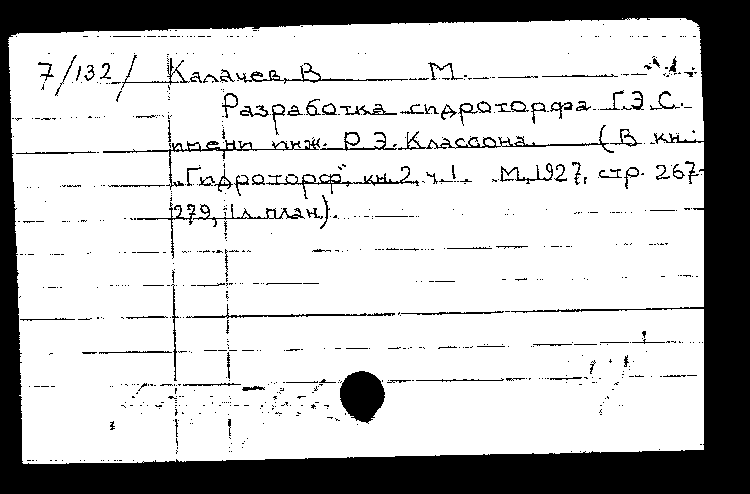 7/132/ Калачев, В М.
Разработка гидроторфа Г.Э.С.
имени инж. Р.Э. Классона. (В кн.:
„Гидроторф", кн. 2, ч. 1. М., 1927, стр. 267-
279, 1 л. план).